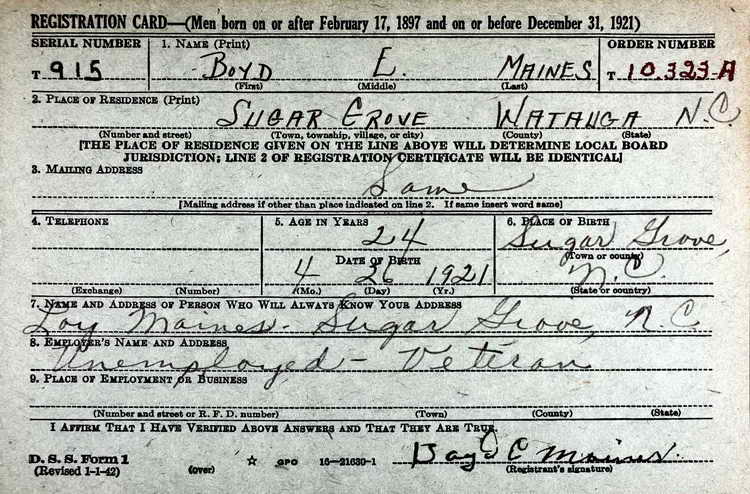 REGISTRATION CARD—(Men born on or after February 17, 1897 and on or before December 31, 1921)
SERIAL NUMBER 1. NAME (Print) ORDER NUMBER
T 915 BOYD E. MAINES T 10,323-A
(First) (Middle) (Last)
2. PLACE OF RESIDENCE (Print)
SUGAR GROVE WATAUGA N.C
(Number and street) (Town, township, village, or city) (County) (State)
[THE PLACE OF RESIDENCE GIVEN ON THE LINE ABOVE WILL DETERMINE LOCAL BOARD
JURISDICTION; LINE 2 OF REGISTRATION CERTIFICATE WILL BE IDENTICAL]
3. MAILING ADDRESS
Same
[Mailing address if other than place indicated on line 2. If same insert word same]
4. TELEPHONE 5. AGE IN YEARS 6. PLACE OF BIRTH
24 Sugar Grove,
DATE OF BIRTH (Town or county)
4 26 1921 N.C.
(Exchange) (Number) (Mo.) (Day) (Yr.) (State or country)
7. NAME AND ADDRESS OF PERSON WHO WILL ALWAYS KNOW YOUR ADDRESS
Loy Maines - Sugar Grove, N.C.
8. EMPLOYER'S NAME AND ADDRESS
Unemployed - Veteran
9. PLACE OF EMPLOYMENT OR BUSINESS
(Number and street or R. F. D. number) (Town) (County) (State)
I AFFIRM THAT I HAVE VERIFIED ABOVE ANSWERS AND THAT THEY ARE TRUE.
D. S. S. Form 1
(Revised 1-1-42) (over) ☆ GPO 16—21630-1 Boyd E Maines.
(Registrant's signature)